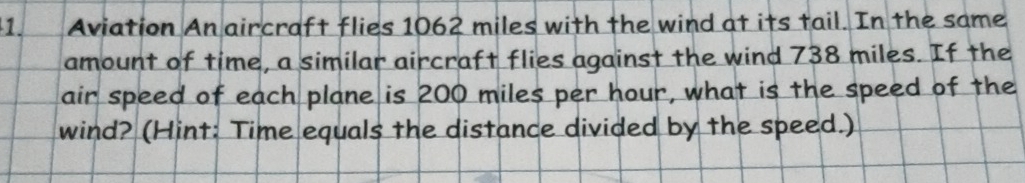 1. Aviation An aircraft flies 1062 miles with the wind at its tail. In the same
amount of time, a similar aircraft flies against the wind 738 miles. If the
air speed of each plane is 200 miles per hour, what is the speed of the
wind? (Hint: Time equals the distance divided by the speed.)